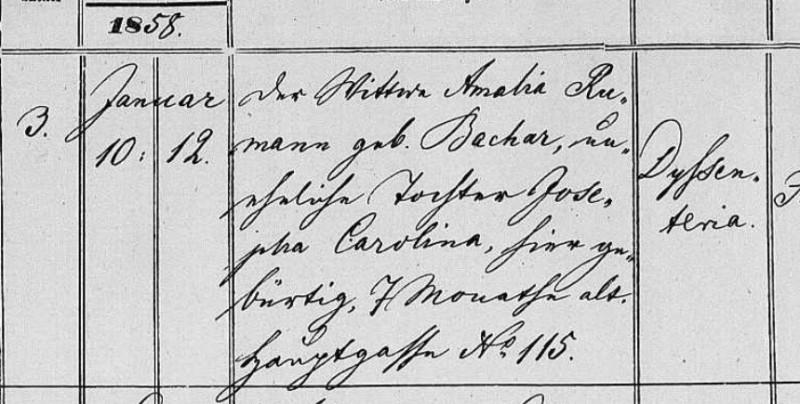 1858.
3.
Januar
10. 12.
Der Wittwe Amalia Ru-
mann geb. Bachar, un-
eheliche Tochter Jose-
pha Carolina, hier ge-
bürtig, 7 Monathe alt.
Hauptgasse No 115.
Dyssen-
teria.